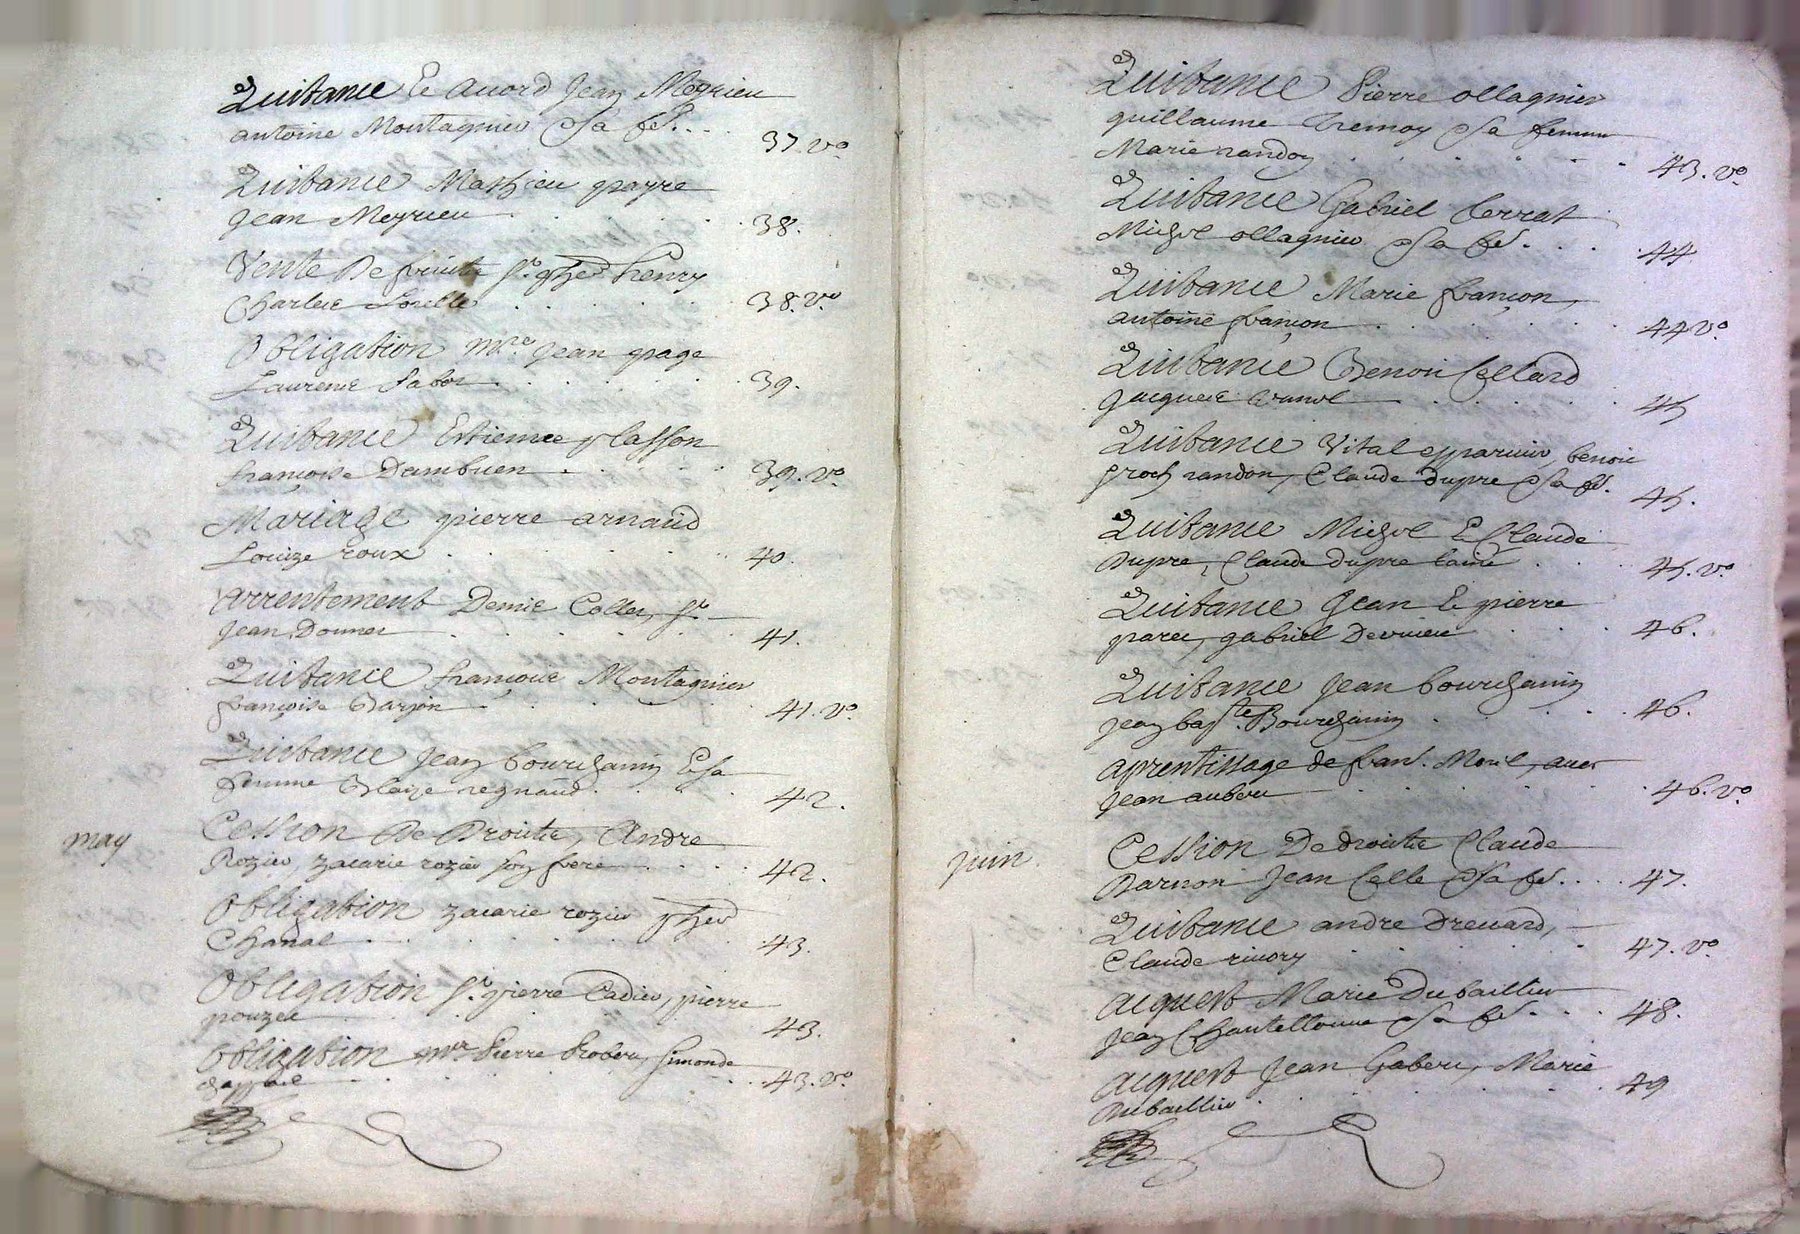 Quitance Et acord Jean Meyrieu
antoine Montagnier & sa fe.
37. vo.
Quitance Mathieu payre
Jean Meyrieu
38.
Vente De fruits Sr.
Charles
38. vo.
Obligation Mre. Jean page
Laurens
39.
Quitance Estienne plasson
françoise Dambuen
39. vo.
Mariage pierre arnaud
Louize roux
40.
arrentement Denis Colles, Sr
Jean
41.
Quitance françois Montagnier
françoise Darjon
41. vo.
Quitance Jean bourchanin Et sa
femme Blaize regnaud
42.
may
Cession De Droits, Andre
Rozier, zacarie rozier son frere
42.
Obligation zacarie rozier
Chanal
43.
Obligation Sr. pierre Cadier, pierre
pouzet
43.
Obligation Mr Pierre Simonde
43. vo.
Quitance Pierre ollagnier
guillaume & sa femme
Marie randon
43. vo.
Quitance Gabriel Cerrat
Michel ollagnier & sa fe.
44
Quitance Marie françon,
antoine françon
44 vo.
Quitance Benoit Cellard
Jacques
45
Quitance Vital benoit
roch randon, Claude dupre & sa fe.
45.
Quitance Michel Et Claude
Dupre, Claude dupre laine
45. vo.
Quitance Jean Et pierre
paret, gabriel Devrieu
46.
Quitance Jean bourchanin
Jean bapte. Bourchanin
46.
aprentissage de fran. avec
Jean aubert
46. vo.
juin
Cession De droits Claude
Darnon Jean Celle & sa fe.
47.
Quitance andre Drevard,
Claude rivory
47. vo.
acquest Marie Dubaillier
Jean Chantellouve & sa fe.
48.
acquest Jean Gabert, Marie
Dubaillier
49